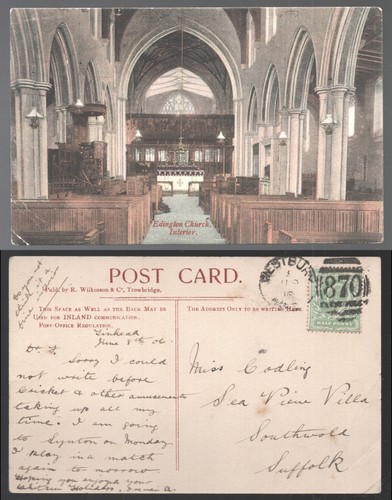 Edington Church,
Interior.
POST CARD.
Publ. by R. Wilkinson & Co, Trowbridge.
THIS SPACE AS WELL AS THE BACK MAY BE
USED FOR INLAND COMMUNICATION.
POST-OFFICE REGULATION.
THE ADDRESS ONLY TO BE WRITTEN HERE.
WESTBURY
870
HALF PENNY
Tinhead
June 8th 06.
Sorry I could
not write before
Cricket & other amusements
taking up all my
time. I am going
to Lynton on Monday
I play in a match
again to morrow
Hoping you enjoyed your
Whitsun Holidays.
Miss Codling
Sea View Villa
Southwold
Suffolk